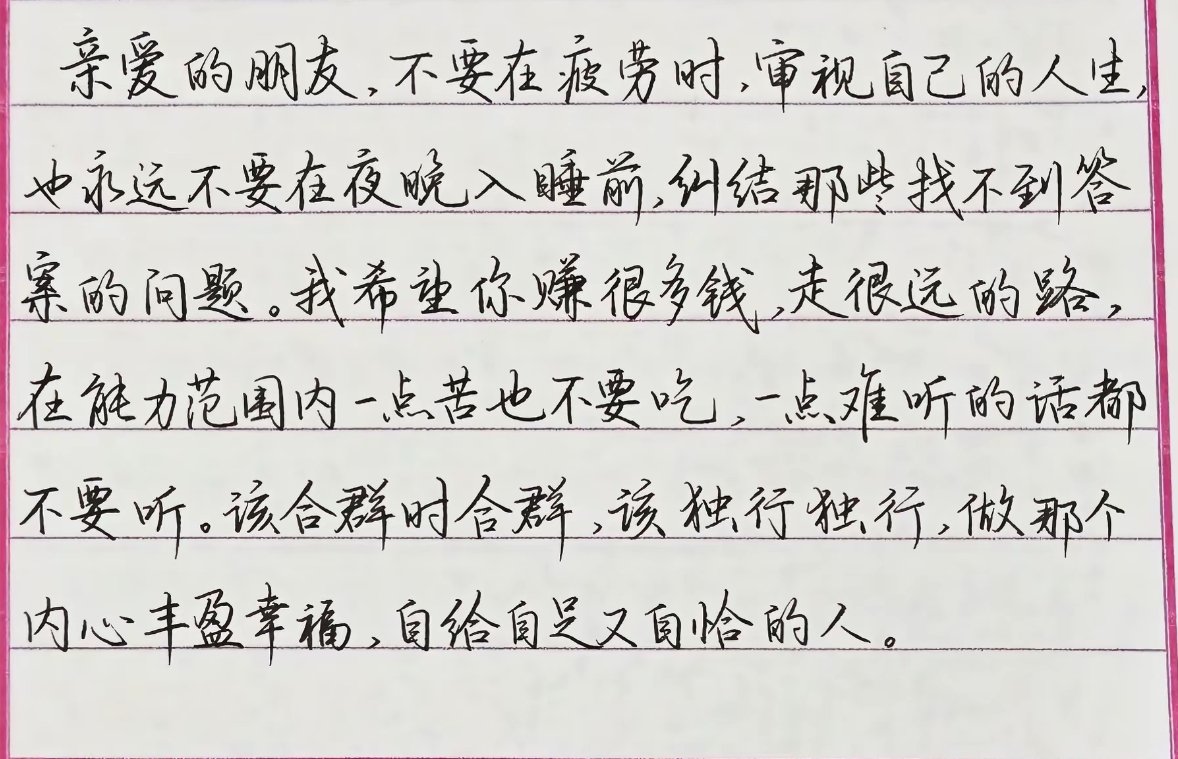 亲爱的朋友,不要在疲劳时,审视自己的人生,
也永远不要在夜晚入睡前,纠结那些找不到答
案的问题。我希望你赚很多钱,走很远的路,
在能力范围内一点苦也不要吃,一点难听的话都
不要听。该合群时合群,该独行独行,做那个
内心丰盈幸福,自给自足又自恰的人。